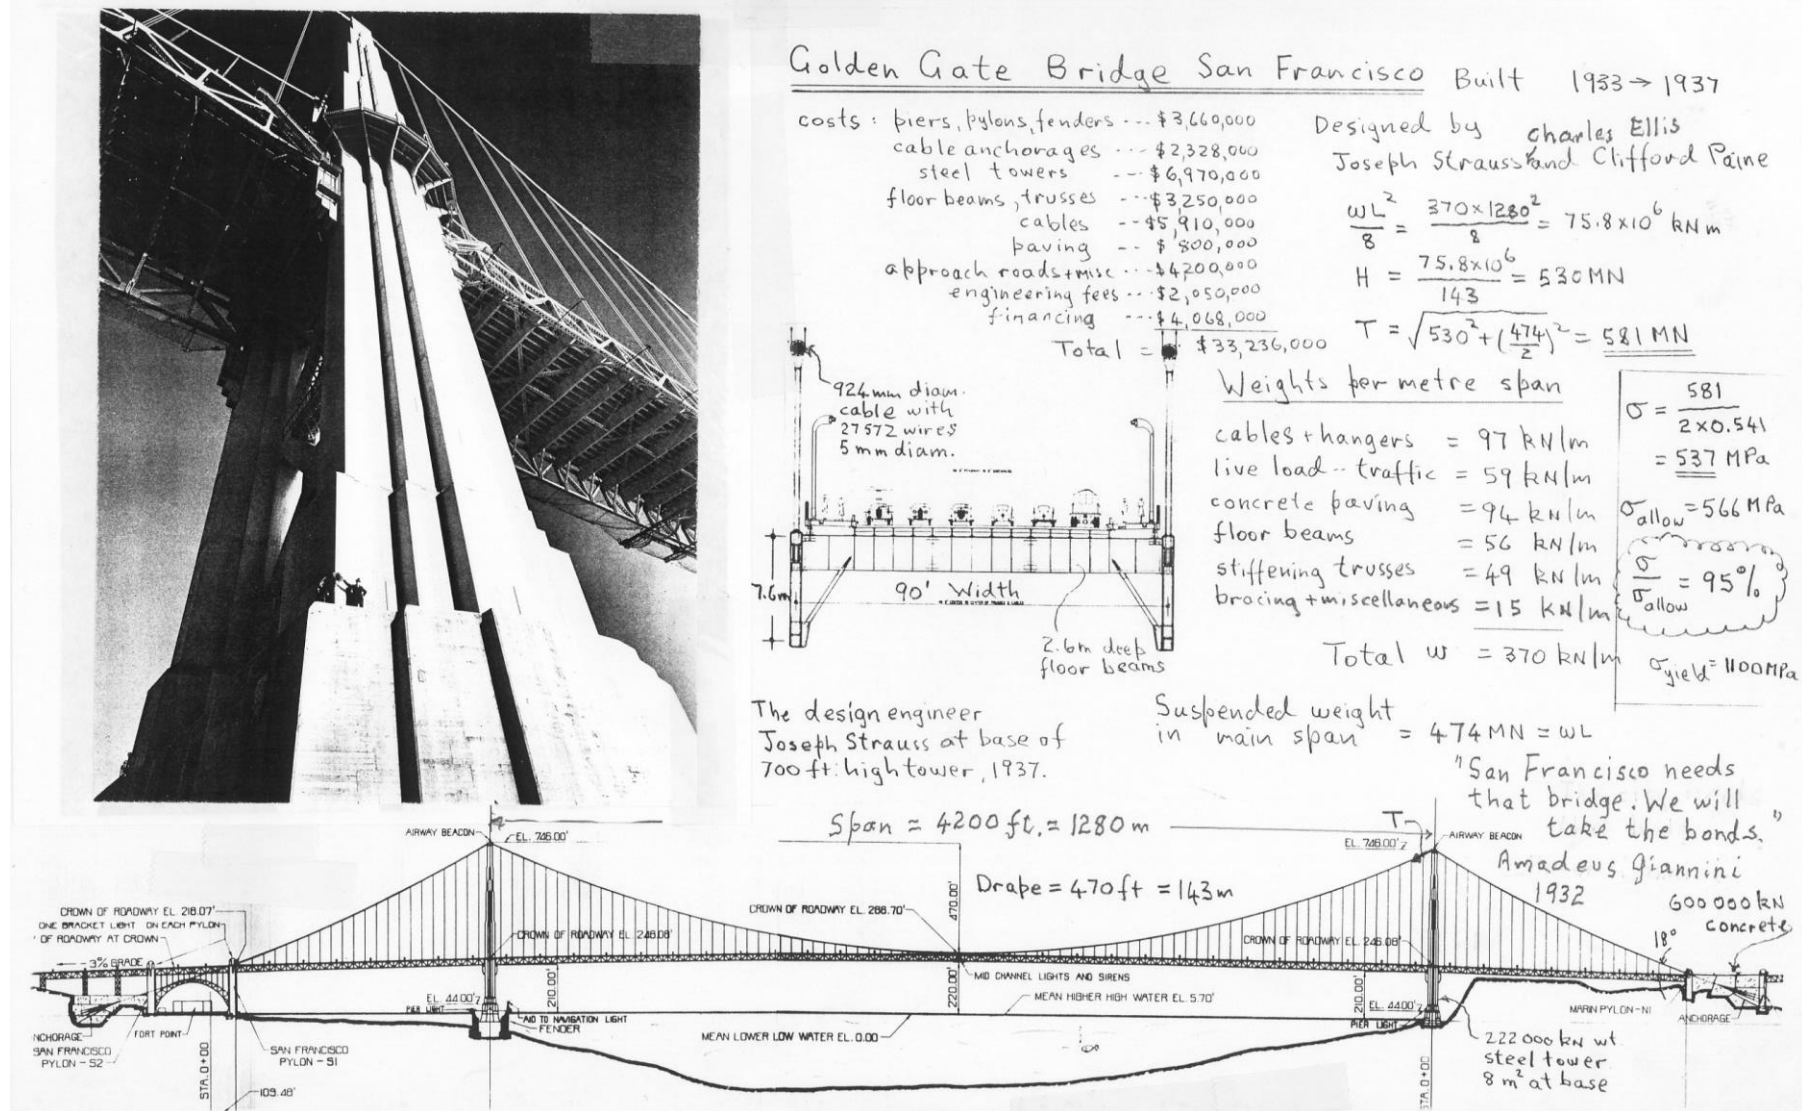 Golden Gate Bridge San Francisco Built 1933 → 1937
costs : piers, pylons, fenders --- $3,660,000
cable anchorages --- $2,328,000
steel towers --- $6,970,000
floor beams, trusses --- $3,250,000
cables -- $5,910,000
paving -- $ 800,000
approach roads + misc --- $4200,000
engineering fees --- $2,050,000
financing --- $4,068,000
Total = $33,236,000
Designed by Charles Ellis
Joseph Strauss and Clifford Paine
wL²/8 = 370×1280²/8 = 75.8×10⁶ kN m
H = 75.8×10⁶/143 = 530 MN
T = √530² + (474/2)² = 581 MN
924 mm diam.
cable with
27572 wires
5 mm diam.
7.6m
90' Width
2.6m deep
floor beams
Weights per metre span
cables + hangers = 97 kN/m
live load -- traffic = 59 kN/m
concrete paving = 94 kN/m
floor beams = 56 kN/m
stiffening trusses = 49 kN/m
bracing + miscellaneous = 15 kN/m
Total w = 370 kN/m
σ = 581/2×0.541
= 537 MPa
σallow = 566 MPa
σ/σallow = 95%
σyield = 1100MPa
The design engineer
Joseph Strauss at base of
700 ft. high tower, 1937.
Suspended weight
in main span = 474 MN = wL
"San Francisco needs
that bridge. We will
take the bonds."
Amadeus Giannini
1932
Span = 4200 ft. = 1280 m
T
Drape = 470 ft = 143 m
600 000 kN
concrete
18°
AIRWAY BEACON
EL. 746.00'
EL. 746.00'
AIRWAY BEACON
470.00'
CROWN OF ROADWAY EL. 218.07'
ONE BRACKET LIGHT ON EACH PYLON
OF ROADWAY AT CROWN
3% GRADE
CROWN OF ROADWAY EL. 246.08'
CROWN OF ROADWAY EL. 266.70'
CROWN OF ROADWAY EL. 246.08'
MID CHANNEL LIGHTS AND SIRENS
210.00'
220.00'
210.00'
MEAN HIGHER HIGH WATER EL. 5.70'
EL. 44.00'
PIER LIGHT
AID TO NAVIGATION LIGHT
FENDER
MEAN LOWER LOW WATER EL. 0.00
EL. 44.00'
PIER LIGHT
MARIN PYLON - N1
ANCHORAGE
NCHORAGE
FORT POINT
SAN FRANCISCO
PYLON - S2
STA. 0+00
SAN FRANCISCO
PYLON - S1
109.48'
TA. 0+00
222 000 kN wt.
steel tower
8 m² at base